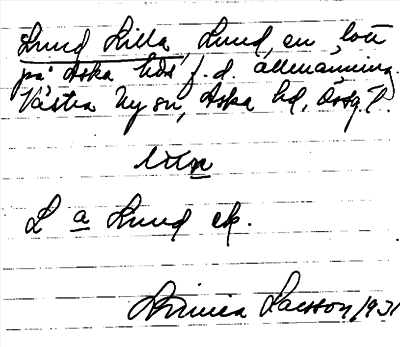 Lund Lilla, Lund, en lott
på Aska hds f.d. allmänning.
Västra Ny sn, Aska hd, Östg. l.
L a Lund ek.
Linnea Larsson 1931